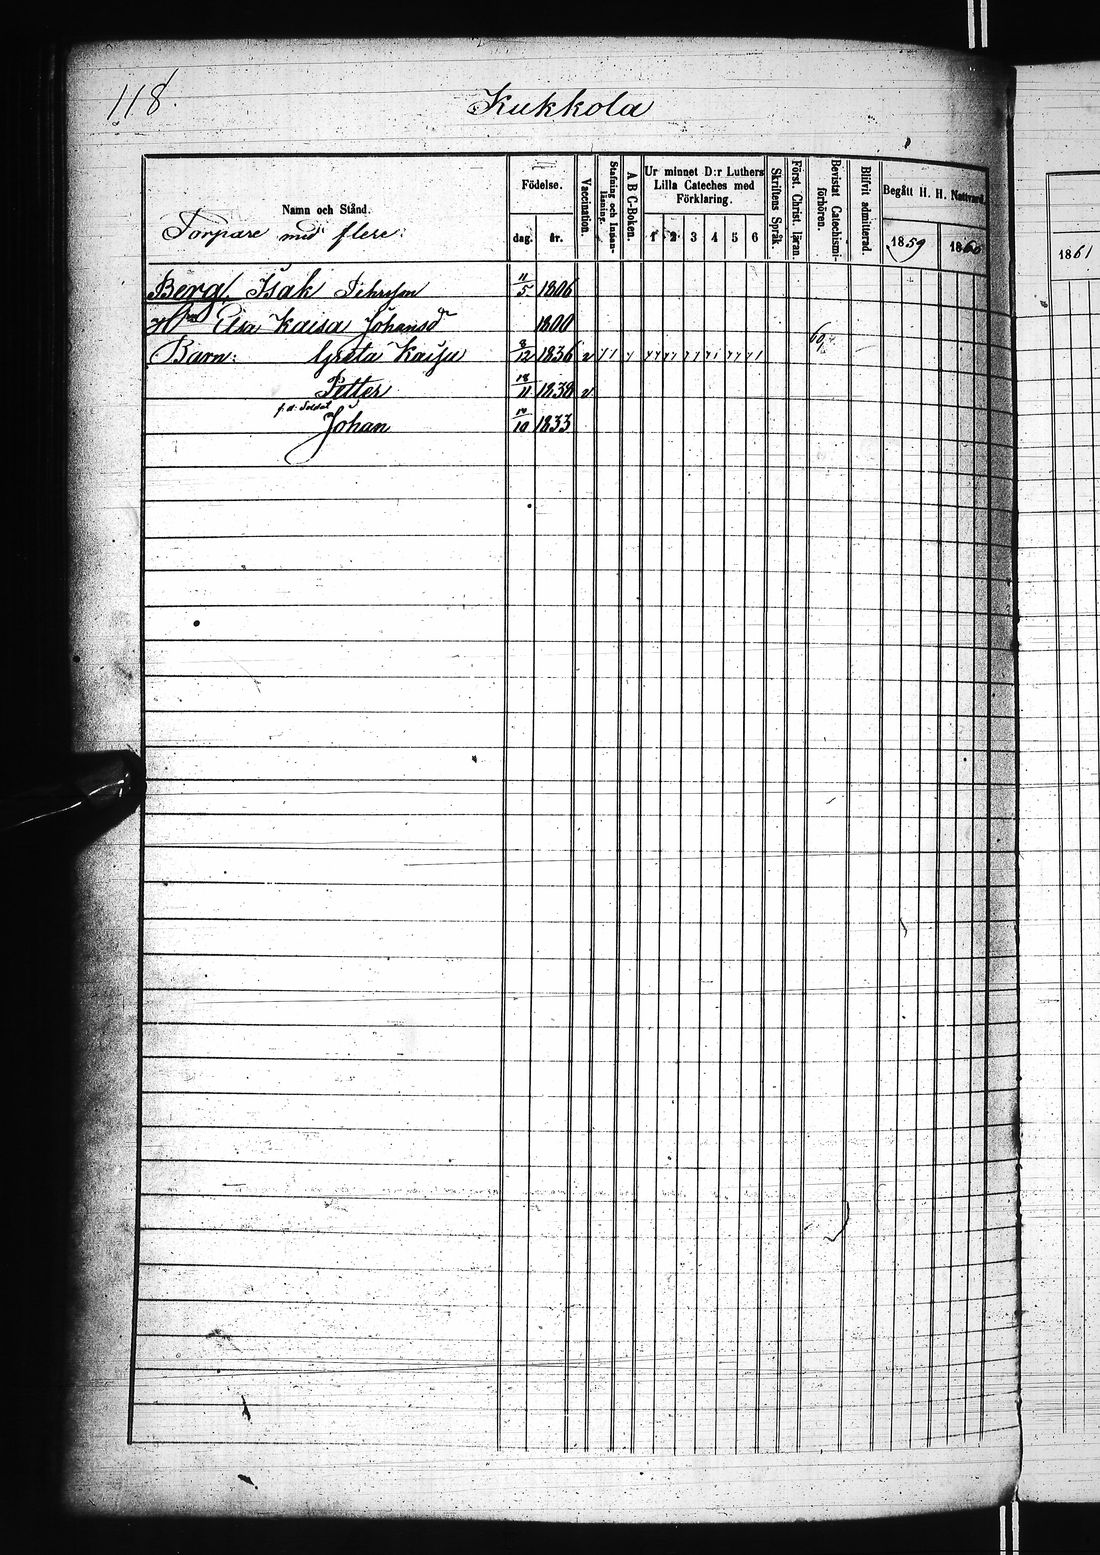 118.
Kukkola
Namn och Stånd.
Torpare med flere:
Födelse.
dag. år.
Vaccination.
Stafning och Innan-läsning.
A B C-Boken.
Ur minnet D:r Luthers Lilla Cateches med Förklaring.
1 2 3 4 5 6
Skriftens Språk.
Först. Christ. läran.
Bevistat Catechismi-förhören.
Blifvit admitterad.
Begått H. H. Nattvard.
1859 1860
1861
Berg, Isak 11/5 1806
Hu Elsa Kaisa Johansd 1800
Barn: Greta Kaisa 8/12 1836 v 60
Petter 18/11 1838 v
f.d. Soldat
Johan 10 1833